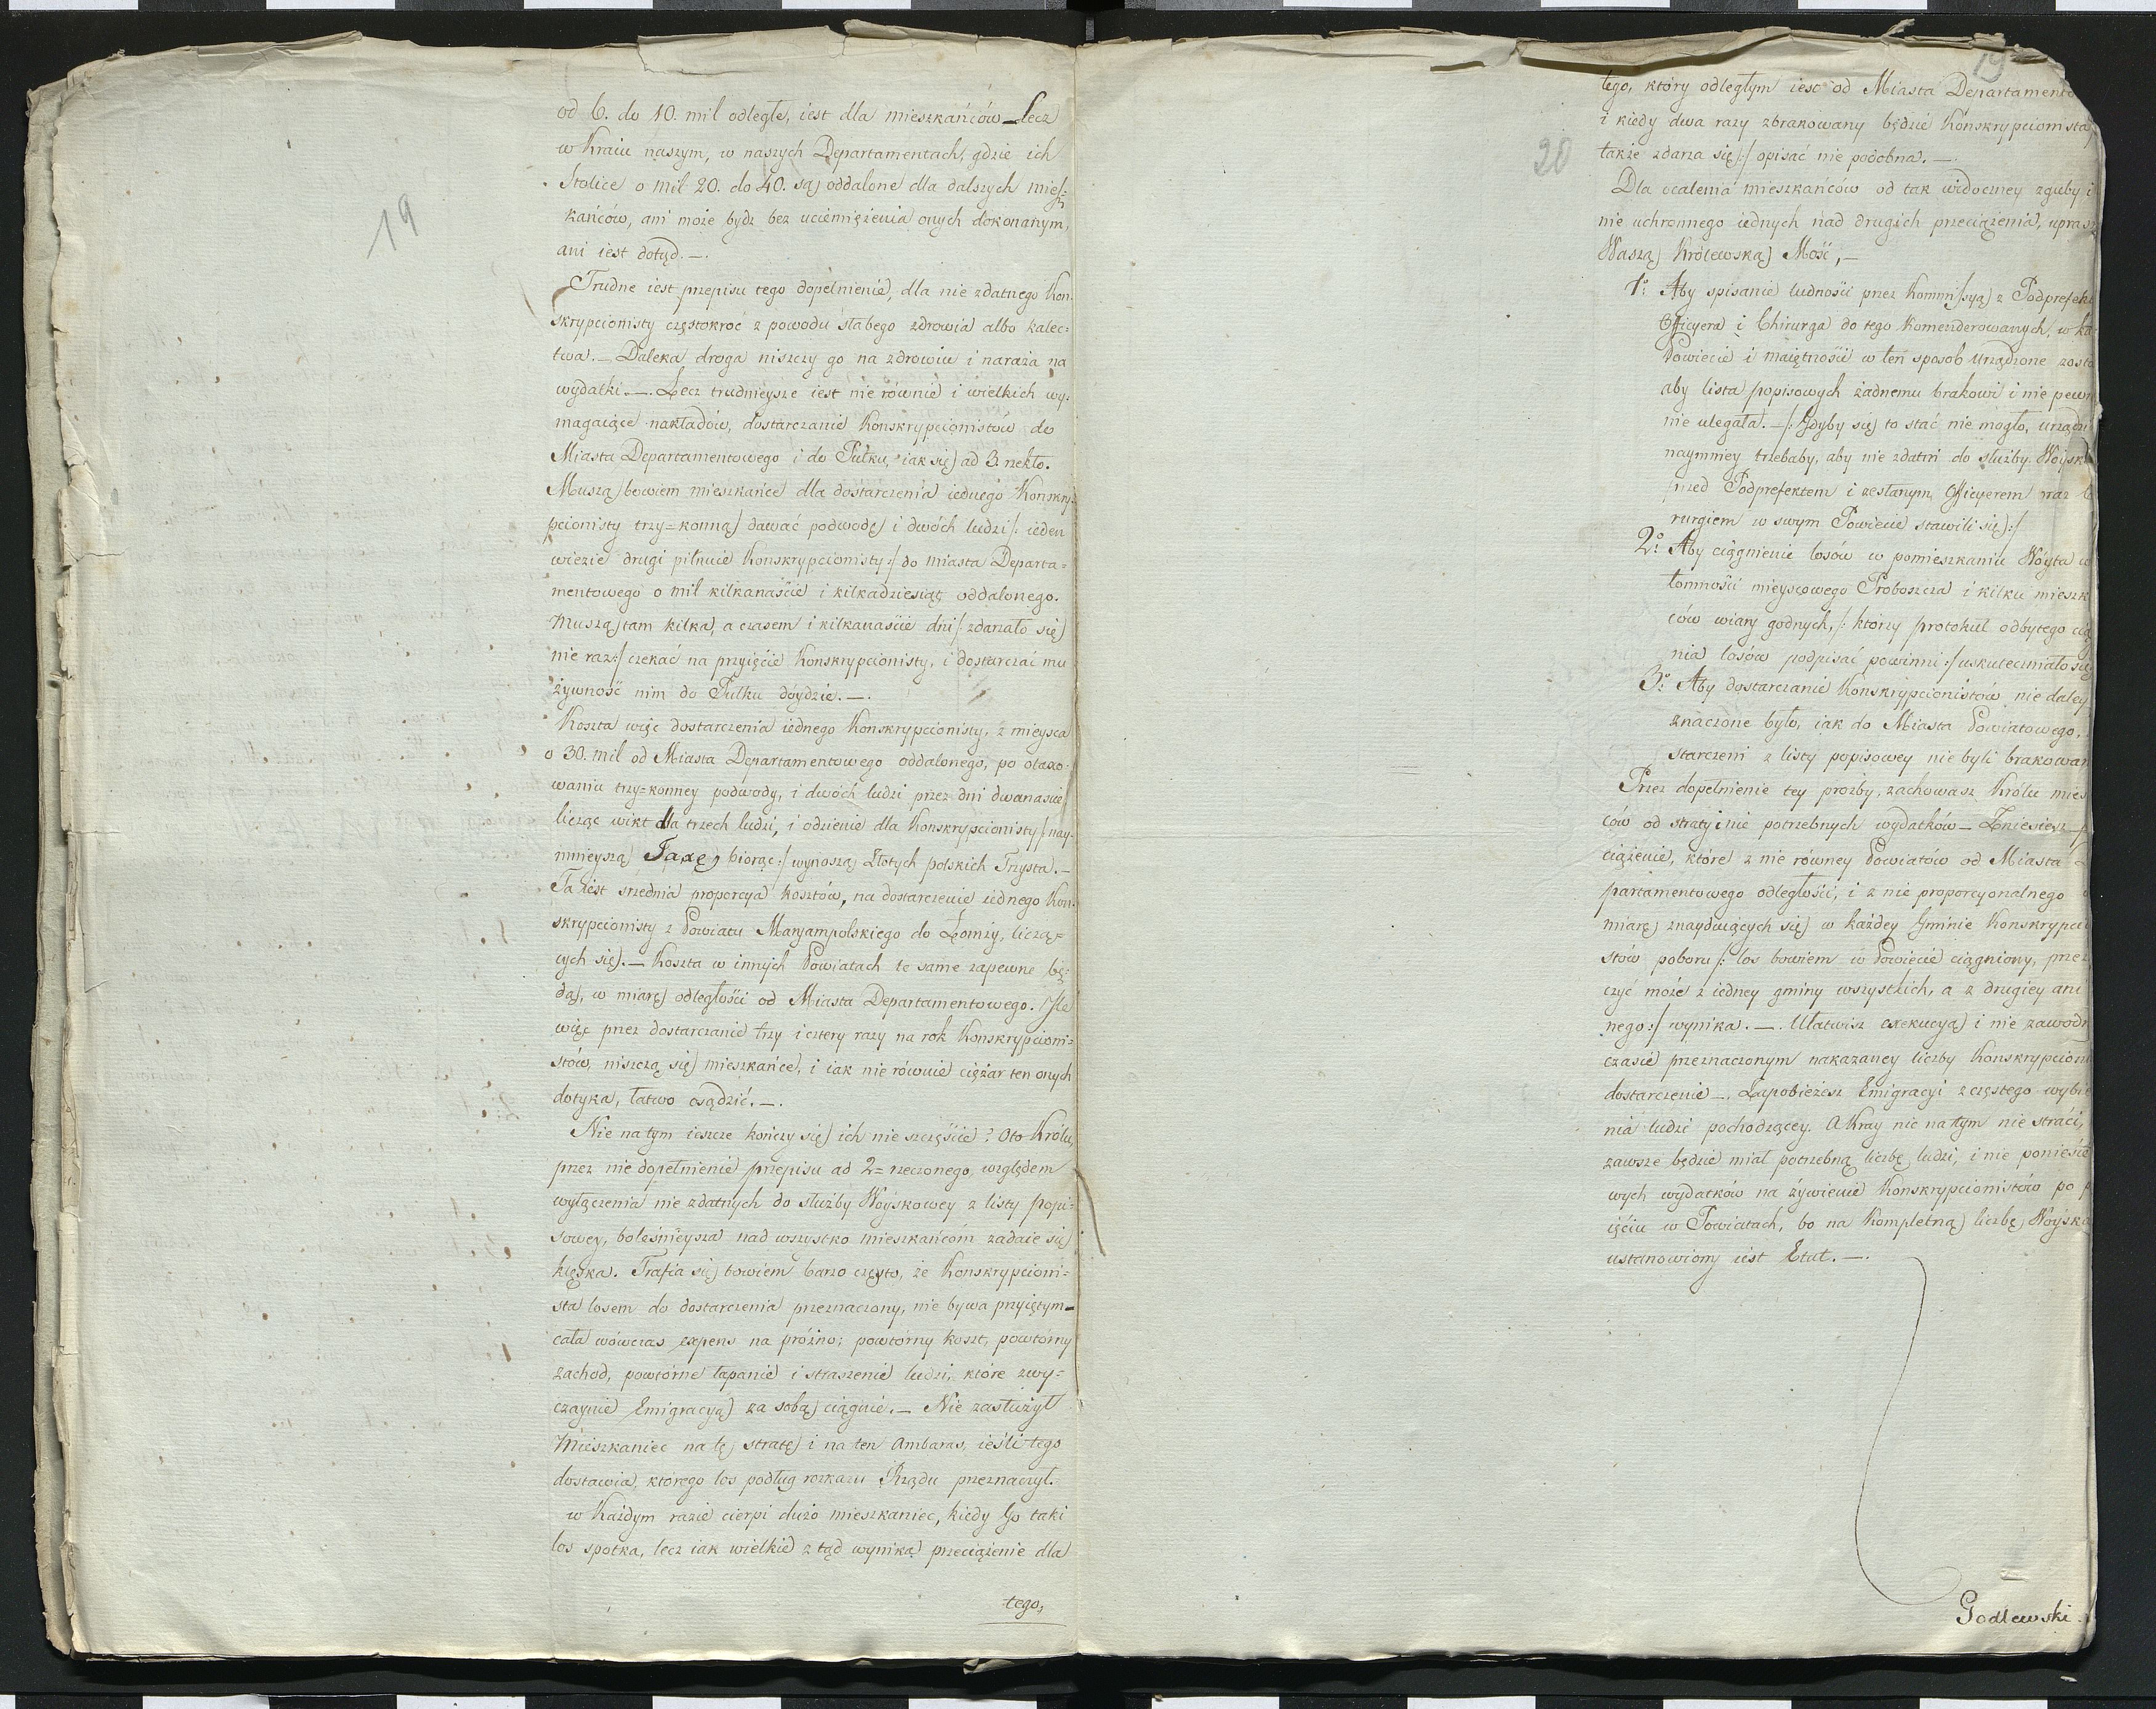 19
od 6. do 10. mil odległe, iest dla mieszkańców – Lecz
w Kraiu naszym, w naszych Departamentach, gdzie ich
Stolice o mil 20. do 40. są oddalone dla dalszych miesz-
kańców, ani może bydz bez uciemiężenia onych dokonanym,
ani iest dotąd. —.
Trudne iest przepisu tego dopełnienie, dla nie zdatnego Kon-
skrypcionisty częstokroć z powodu słabego zdrowia albo kalec=
twa. — Daleka droga niszczy go na zdrowiu i naraża na
wydatki. —. Lecz trudnieysze iest nie równie i wielkich wy-
magaiące nakładów, dostarczanie Konskrypcionistów do
Miasta Departamentowego i do Pułku, iak się ad 3. rzekło.
Muszą bowiem mieszkańce dla dostarczenia iednego Konskry-
pcionisty trzy=konną dawać podwodę i dwóch ludzi /: ieden
wiezie drugi pilnuie Konskrypcionisty :/ do miasta Departa=
mentowego o mil kilkanaście i kilkadziesiąt oddalonego.
Muszą tam kilka, a czasem i kilkanaście dni /: zdarzało się
nie raz :/ czekać na przyięcie Konskrypcionisty, i dostarczać mu
żywność nim do Pułku doydzie. —.
Koszta więc dostarczenia iednego Konskrypcionisty, z mieysca
o 30. mil od Miasta Departamentowego oddalonego, po otaxo-
waniu trzy=konney podwody, i dwóch ludzi przez dni dwanaście
licząc wikt dla trzech ludzi, i odzienie dla Konskrypcionisty /: nay-
mnieyszą Taxę biorąc :/ wynoszą Złotych polskich Trzysta. —
Ta iest srzednia proporcya kosztów, na dostarczenie iednego Kon-
skrypcionisty z Powiatu Maryampolskiego do Łomży, liczą=
cych się. — Koszta w innych Powiatach te same zapewne bę-
dą, w miarę odległości od Miasta Departamentowego. Ile
więc przez dostarczanie trzy i cztery razy na rok Konskrypcioni=
stów, niszczą się mieszkańce, i iak nie równie ciężar ten onych
dotyka, łatwo osądzić. —.
Nie na tym ieszcze kończy się ich nie szczęście? Oto Królu
przez nie dopełnienie przepisu ad 2= rzeczonego, względem
wyłączenia nie zdatnych do służby Woyskowey z listy popi=
sowey, boleśnieysza nad wszystko mieszkańcom zadaie się
klęska. Trafia się bowiem barzo często, że Konskrypcioni=
sta losem do dostarczenia przeznaczony, nie bywa przyiętym –
cała wówczas expens na próżno; powtórny koszt, powtórny
zachod, powtórne łapanie i straszenie ludzi, które zwy=
czaynie Emigracyą za sobą ciągnie. — Nie zasłużył
Mieszkaniec na tę stratę i na ten Ambaras, ieśli tego
dostawia, którego los podług rozkazu Rządu przeznaczył.
w Każdym razie cierpi dużo mieszkaniec, kiedy Go taki
los spotka, lecz iak wielkie z tąd wynika przeciążenie dla
tego,
19
20
tego, który odległym iest od Miasta Departamento
i kiedy dwa razy zbrakowany będzie Konskrypcionista
także zdarza się :/ opisać nie podobna. —.
Dla ocalenia mieszkańców od tak widoczney zguby i
nie uchronnego iednych nad drugich przeciążenia, uprasz
Waszą Królewską Mość, —
1o. Aby spisanie ludności przez Kommissyą z Podprefek
Officyera i Chirurga do tego Komenderowanych, w ka
Powiecie i maiętności w ten sposob urządzone zosta
aby lista popisowych żadnemu brakowi i nie pewn
nie ulegała. — /: Gdyby się to stać nie mogło, urządz
naymniey trzebaby, aby nie zdatni do służby Woysk
przed Podprefektem i zesłanym Officyerem wraz
rurgiem w swym Powiecie stawili się :/
2o. Aby ciągnienie losów w pomieszkaniu Wóyta w
tomności mieyscowego Proboszcza i kilku mieszk
ców wiary godnych, /: którzy protokuł odbytego cią
nia losów podpisać powinni :/ uskuteczniało się
3o. Aby dostarczanie Konskrypcionistów nie daley
znaczone było, iak do Miasta Powiatowego,
starczeni z listy popisowey nie byli brakowan
Przez dopełnienie tey prożby, zachowasz Królu mies
ców od straty i nie potrzebnych wydatków – Zniesiesz p
ciążenie, które z nie równey Powiatów od Miasta
partamentowego odległości, i z nie proporcyonalnego
miarę znayduiących się w każdey Gminie Konskrypcio
stów poboru /: los bowiem w Powiecie ciągniony, prze
czyć może z iedney gminy wszystkich, a z drugiey ani
nego :/ wynika. —. Ułatwisz exekucyą i nie zawodn
czasie przeznaczonym nakazaney liczby Konskrypcioni
dostarczenie —. Zapobieżesz Emigracyi z częstego wybie
nia ludzi pochodzącey. A Kray nic na tym nie straci,
zawsze będzie miał potrzebną liczbę ludzi, i nie poniesie
wych wydatków na żywienie Konskrypcionistów po p
ięciu w Powiatach, bo na Kompletną liczbę Woyska
ustanowiony iest Etat. —.
Godlewski